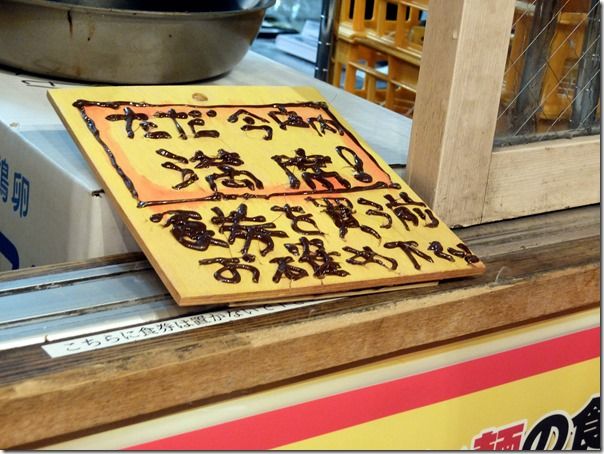 ただ今店内
満席!
食券を買う前
お確お下さい
こちらに食券は置かないで
鶏卵
麺の食